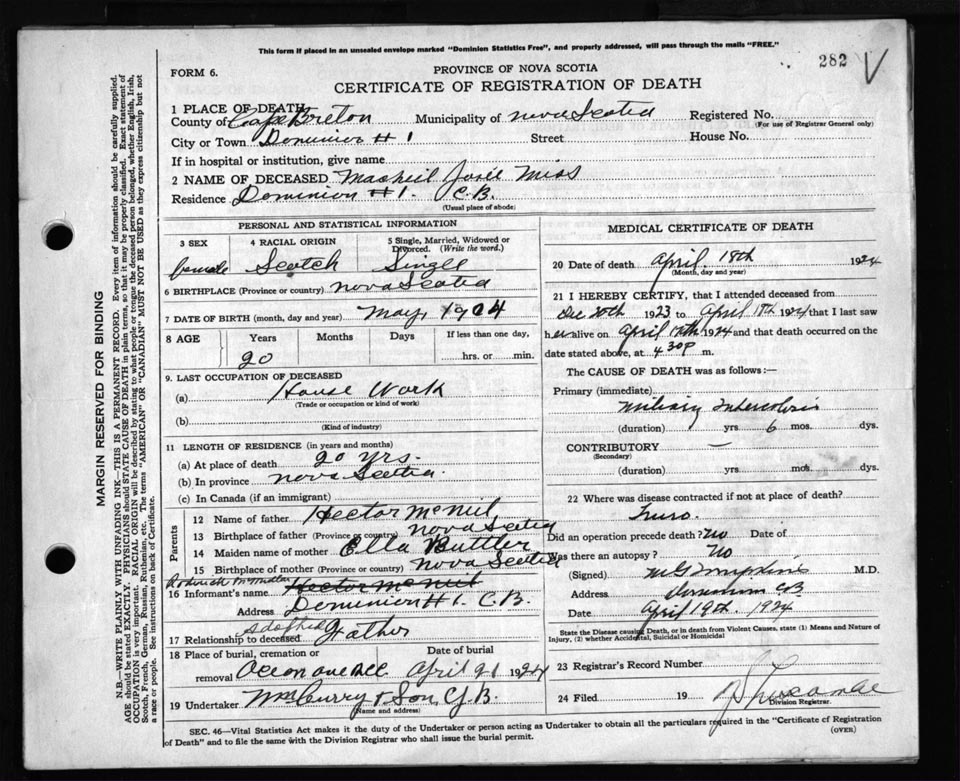 This form if placed in an unsealed envelope marked "Dominion Statistics Free", and properly addressed, will pass through the mails "FREE."
282 V
FORM 6.
PROVINCE OF NOVA SCOTIA
CERTIFICATE OF REGISTRATION OF DEATH
1 PLACE OF DEATH
County of Cape Breton Municipality of Nova Scotia Registered No.
(For use of Registrar General only)
City or Town Dominion # 1 Street House No.
If in hospital or institution, give name
2 NAME OF DECEASED Josie Miss
Residence Dominion # 1. C.B.
(Usual place of abode)
PERSONAL AND STATISTICAL INFORMATION
3 SEX 4 RACIAL ORIGIN 5 Single, Married, Widowed or Divorced. (Write the word.)
female Scotch Single
6 BIRTHPLACE (Province or country) Nova Scotia
7 DATE OF BIRTH (month, day and year) May, 1904
8 AGE Years Months Days If less than one day,
20 hrs. or min.
9. LAST OCCUPATION OF DECEASED
(a) House Work
(Trade or occupation or kind of work)
(b)
(Kind of industry)
11 LENGTH OF RESIDENCE (in years and months)
(a) At place of death 20 yrs.
(b) In province Nova Scotia.
(c) In Canada (if an immigrant)
Parents
12 Name of father Hector McNeil
13 Birthplace of father (Province or country) Nova Scotia
14 Maiden name of mother Ella Buttler
15 Birthplace of mother (Province or country) Nova Scotia
Roderick McMullin
16 Informant's name Hector McNeil
Address Dominion # 1. C.B.
17 Relationship to deceased adopted Father
18 Place of burial, cremation or removal Date of burial
April 21 1924
19 Undertaker Curry & Son, G.B.
(Name and address)
MEDICAL CERTIFICATE OF DEATH
20 Date of death April 18th 1924
(Month, day and year)
21 I HEREBY CERTIFY, that I attended deceased from
Dec 20th 1923 to April 18th 1924 that I last saw
her alive on April 1924 and that death occurred on
date stated above, at 4 30 P m.
The CAUSE OF DEATH was as follows:—
Primary (immediate)
Miliary Tuberculosis
(duration) yrs 6 mos. dys.
CONTRIBUTORY —
(Secondary)
(duration) yrs mos. dys.
22 Where was disease contracted if not at place of death?
Truro.
Did an operation precede death? No Date of
Was there an autopsy? No
(Signed) M G Tompkins M.D.
Address Dominion CB
Date April 19th. 1924
State the Disease causing Death, or in death from Violent Causes, state (1) Means and Nature of
Injury, (2) whether Accidental, Suicidal or Homicidal
23 Registrar's Record Number
24 Filed 19
Division Registrar.
SEC. 46—Vital Statistics Act makes it the duty of the Undertaker or person acting as Undertaker to obtain all the particulars required in the "Certificate of Registration
of Death" and to file the same with the Division Registrar who shall issue the burial permit.
(OVER)
MARGIN RESERVED FOR BINDING
N.B.—WRITE PLAINLY WITH UNFADING INK—THIS IS A PERMANENT RECORD. Every item of information should be carefully supplied.
AGE should be stated EXACTLY. PHYSICIANS should STATE CAUSE OF DEATH in plain terms, so that it may be properly classified. Exact statement of
OCCUPATION is very important. RACIAL ORIGIN will be described by stating to what people or tongue the deceased person belonged, whether English, Irish,
Scotch, French, German, Russian, Ruthenian, etc. The terms "AMERICAN" OR "CANADIAN" MUST NOT BE USED as they express citizenship but not
a race or people. See instructions on back of Certificate.